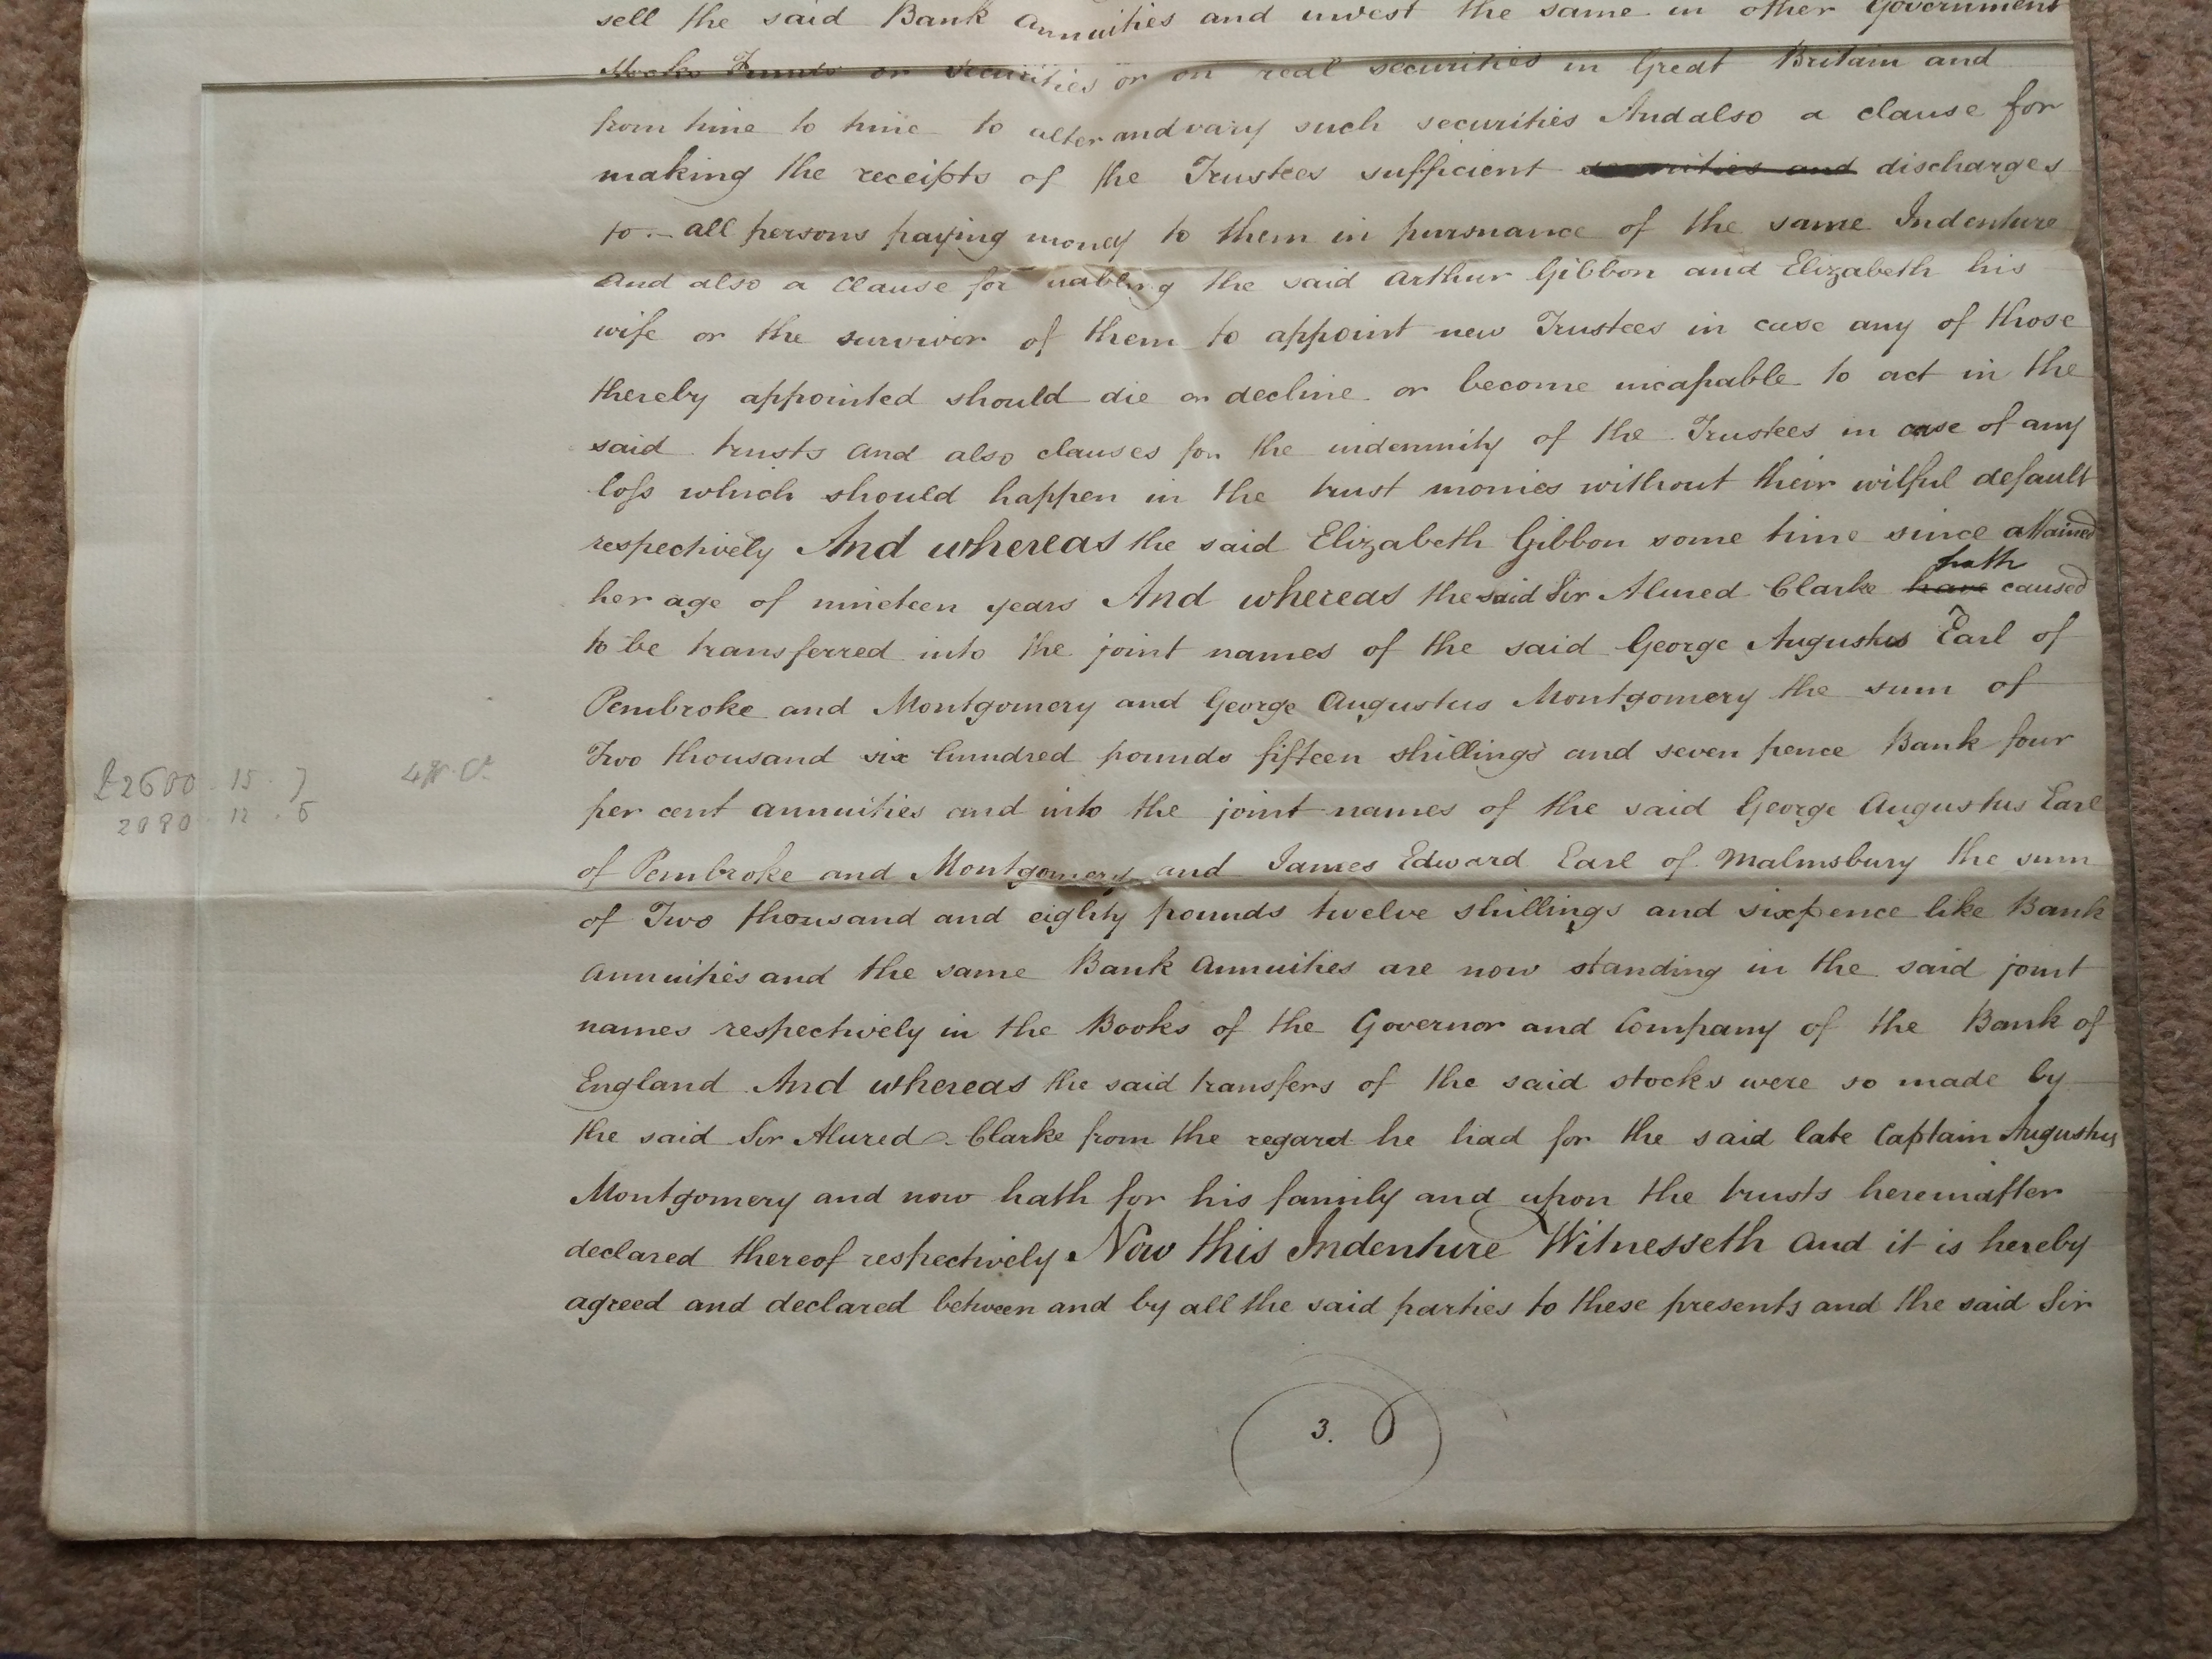 sell the said Bank Annuities and invest the same in other Government
Stocks Funds or securities or on real securities in Great Britain and
from time to time to alter and vary such securities And also a clause for
making the receipts of the Trustees sufficient securities and discharges
to all persons paying money to them in pursuance of the same Indenture
And also a clause for nabling the said Arthur Gibbon and Elizabeth his
wife or the survivor of them to appoint new Trustees in case any of those
thereby appointed should die or decline or become incapable to act in the
said trusts and also clauses for the indemnity of the Trustees in case of any
loſs which should happen in the trust monies without their wilful default
respectively And whereas the said Elizabeth Gibbon some time since attained
hath
her age of nineteen years And whereas the said Sir Alured Clarke have caused
to be transferred into the joint names of the said George Augustus Earl of
Pembroke and Montgomery and George Augustus Montgomery the sum of
Two thousand six hundred pounds fifteen shillings and seven pence Bank four
£2600 - 15 - 7 4 pr. Ct
2080 - 12 . 6
per cent annuities and into the joint names of the said George Augustus Earl
of Pembroke and Montgomery and James Edward Earl of Malmsbury the sum
of Two thousand and eighty pounds twelve shillings and sixpence like Bank
Annuities and the same Bank Annuities are now standing in the said joint
names respectively in the Books of the Governor and Company of the Bank of
England And whereas the said transfers of the said stocks were so made by
the said Sir Alured Clarke from the regard he had for the said late Captain Augustus
Montgomery and now hath for his family and upon the trusts hereinafter
declared thereof respectively Now this Indenture Witnesseth and it is hereby
agreed and declared between and by all the said parties to these presents and the said Sir
3.